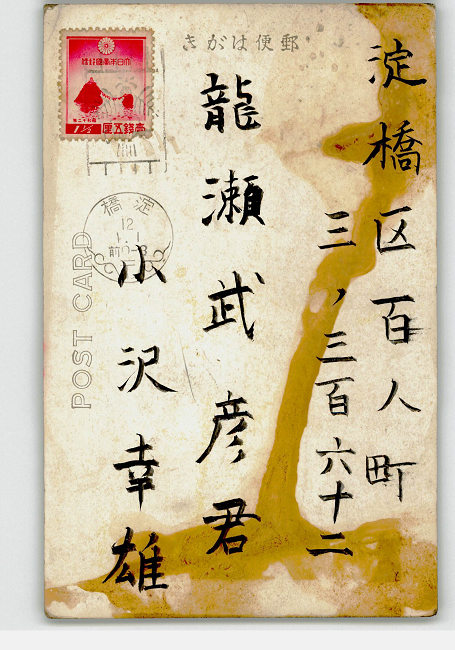 きがは便郵
淀橋区百人町
三ノ三百六十二
龍瀬武彦君
小沢幸雄
大日本帝國郵便
昭和十二年
壹錢五厘
1½
淀橋
12
1.1
POST CARD